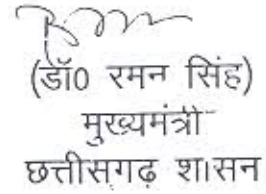 (डॉ0 रमन सिंह)
मुख्यमंत्री
छत्तीसगढ़ शासन